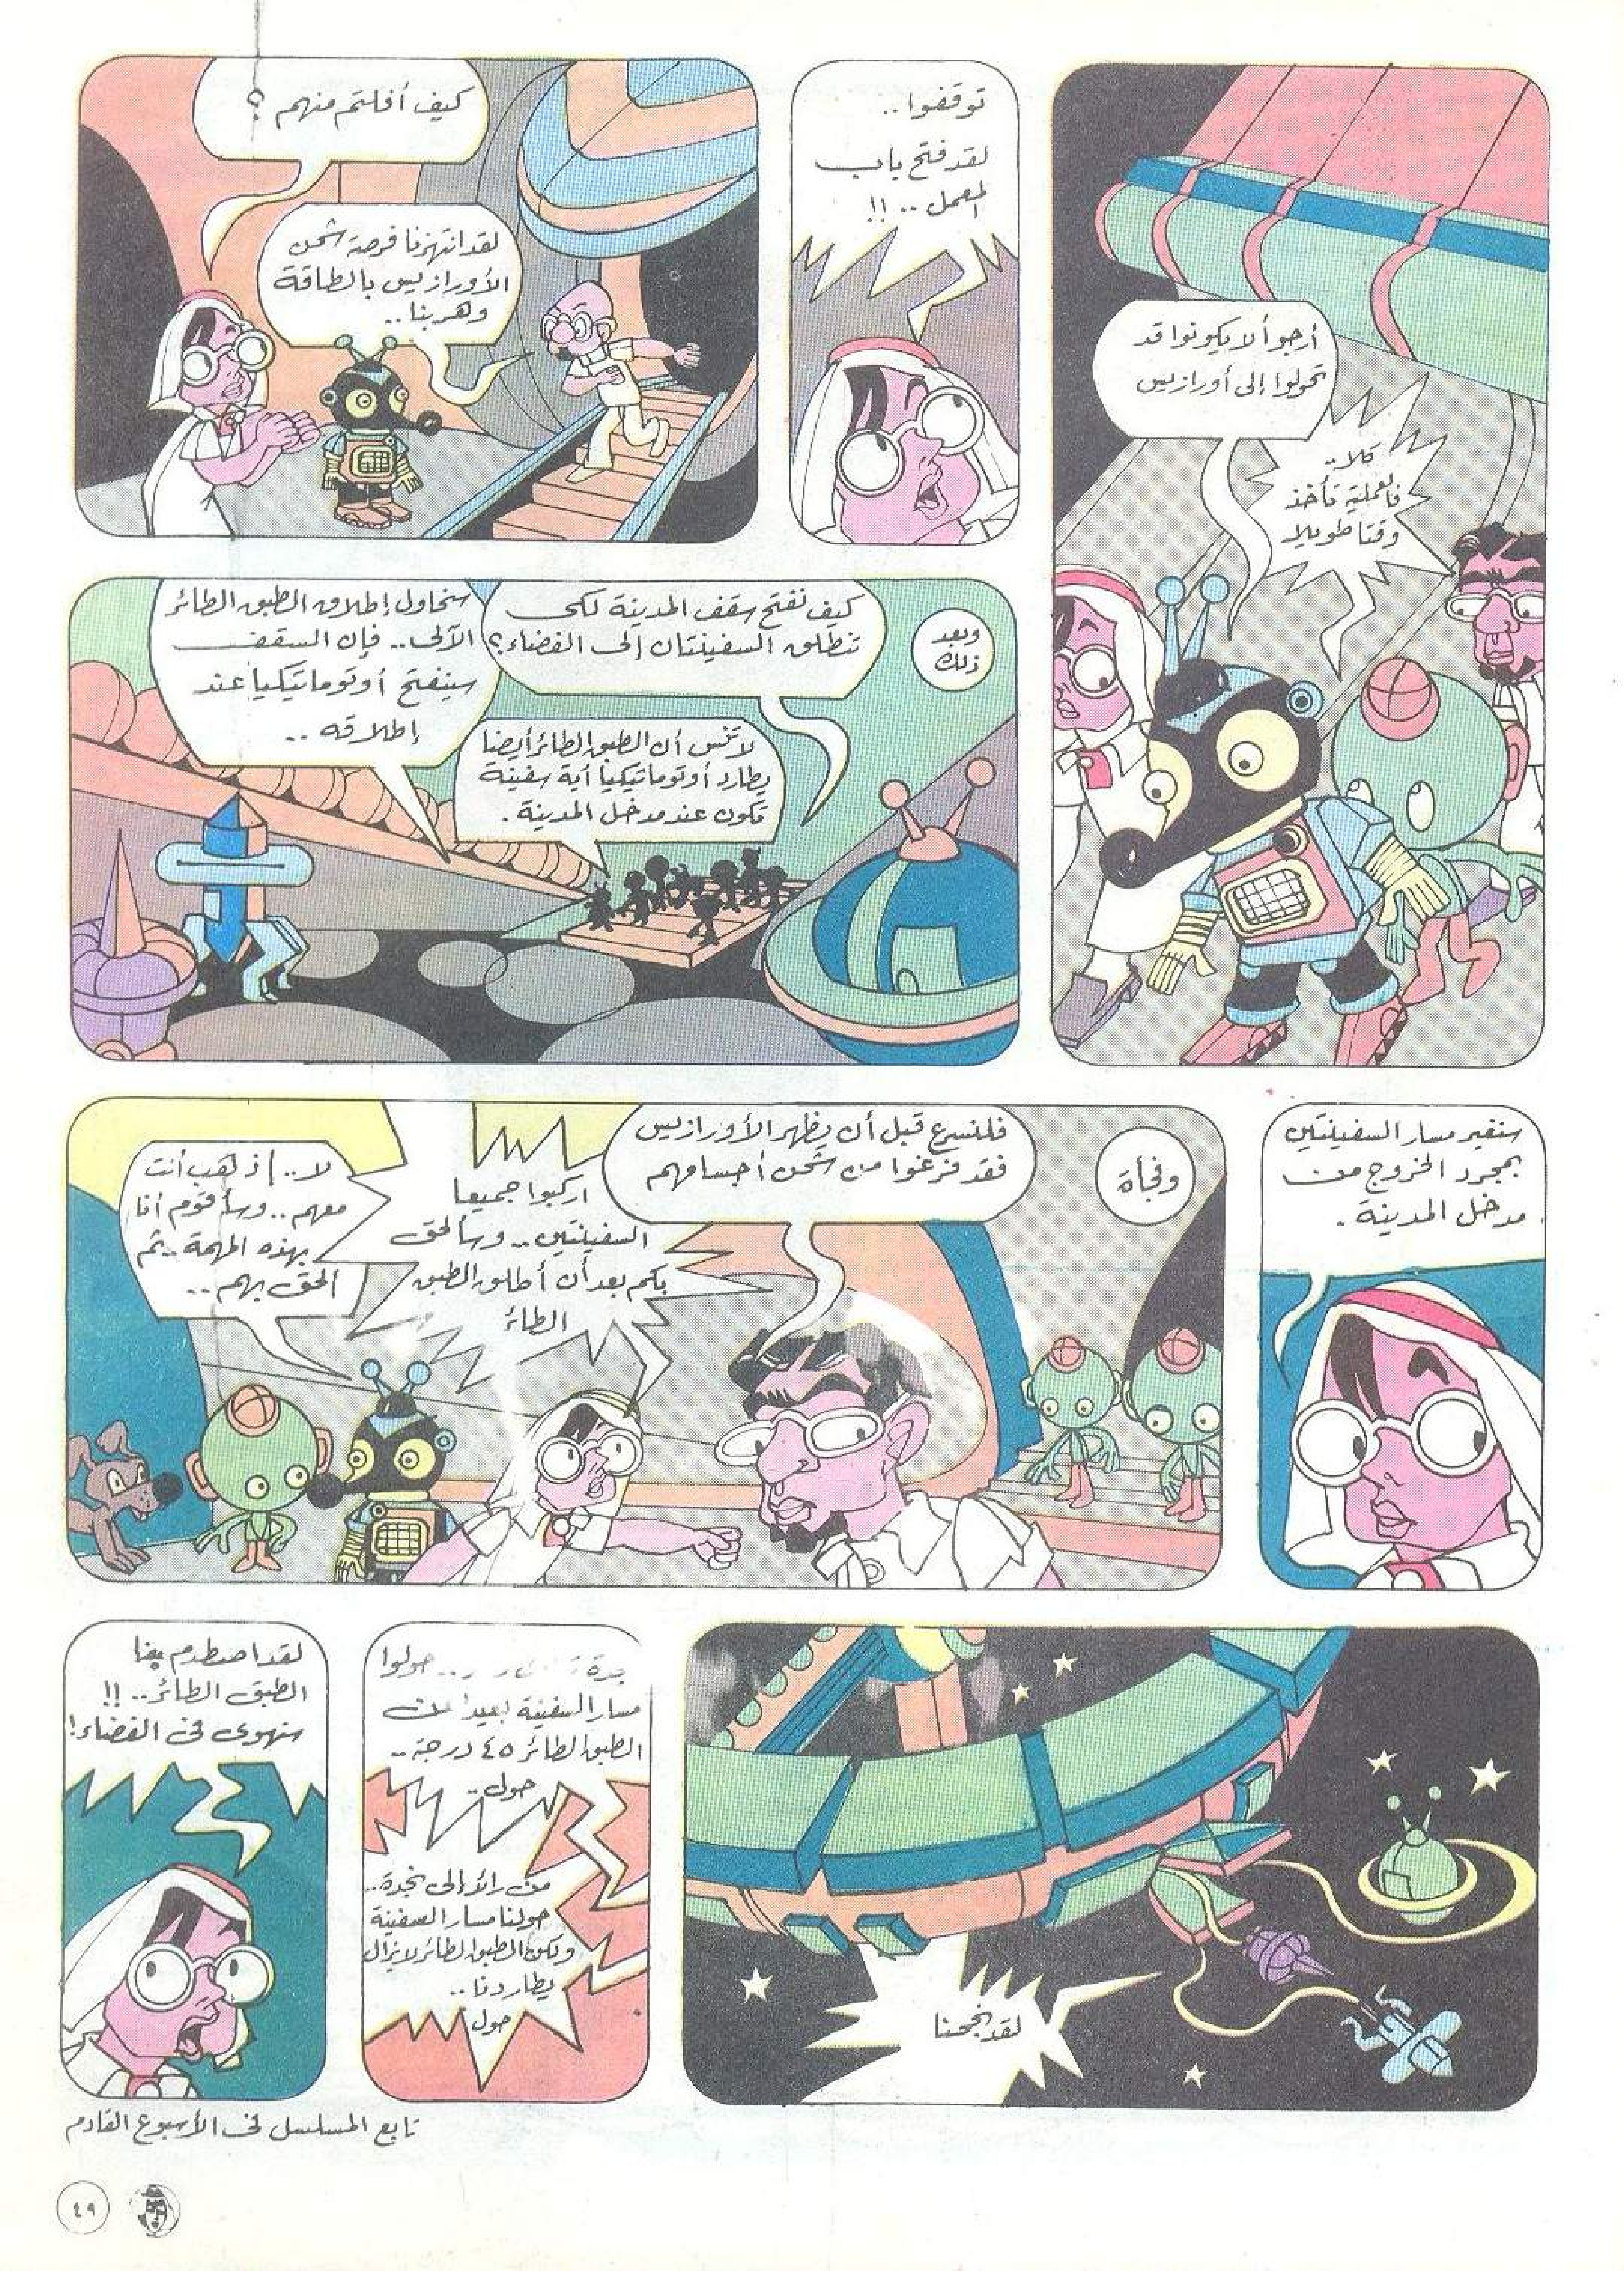 أرجو ألا يكونوا قد
تحولوا إلى أورازيس
كلا..
فالعملية تأخذ
وقتا طويلا
توقفوا..
لقد فتح باب
المعمل..!!
كيف أفلتم منهم ؟
لقد انتهزنا فرصة شحن
الأورازيس بالطاقة
وهربنا..
وبعد
ذلك
كيف نفتح سقف المدينة لكى
تنطلق السفينتان إلى الفضاء؟
سنحاول إطلاق الطبق الطائر
الآلى.. فإن السقف
سينفتح أوتوماتيكيا عند
إطلاقه..
لا تنس أن الطبق الطائر أيضا
يطارد أوتوماتيكيا أية سفينة
تكون عند مدخل المدينة.
سنغير مسار السفينتين
بمجرد الخروج من
مدخل المدينة.
وفجأة
فلنسرع قبل أن يظهر الأورازيس
فقد فرغوا من شحن أجسامهم
اركبوا جميعا
السفينتين.. وسألحق
بكم بعد أن أطلق الطبق
الطائر
لا.. إذهب أنت
معهم.. وسأقوم أنا
بهذه المهمة.. ثم
ألحق بهم..
لقد نجحنا
حولوا
مسار السفينة بعيدا عن
الطبق الطائر ٤٥ درجة..
حول..
من رائد إلى نجدة..
حولنا مسار السفينة
ولكن الطبق الطائر لا يزال
يطاردنا..
حول
لقد اصطدم بنا
الطبق الطائر..!!
سنهوى فى الفضاء!
تابع المسلسل فى الأسبوع القادم
٤٩